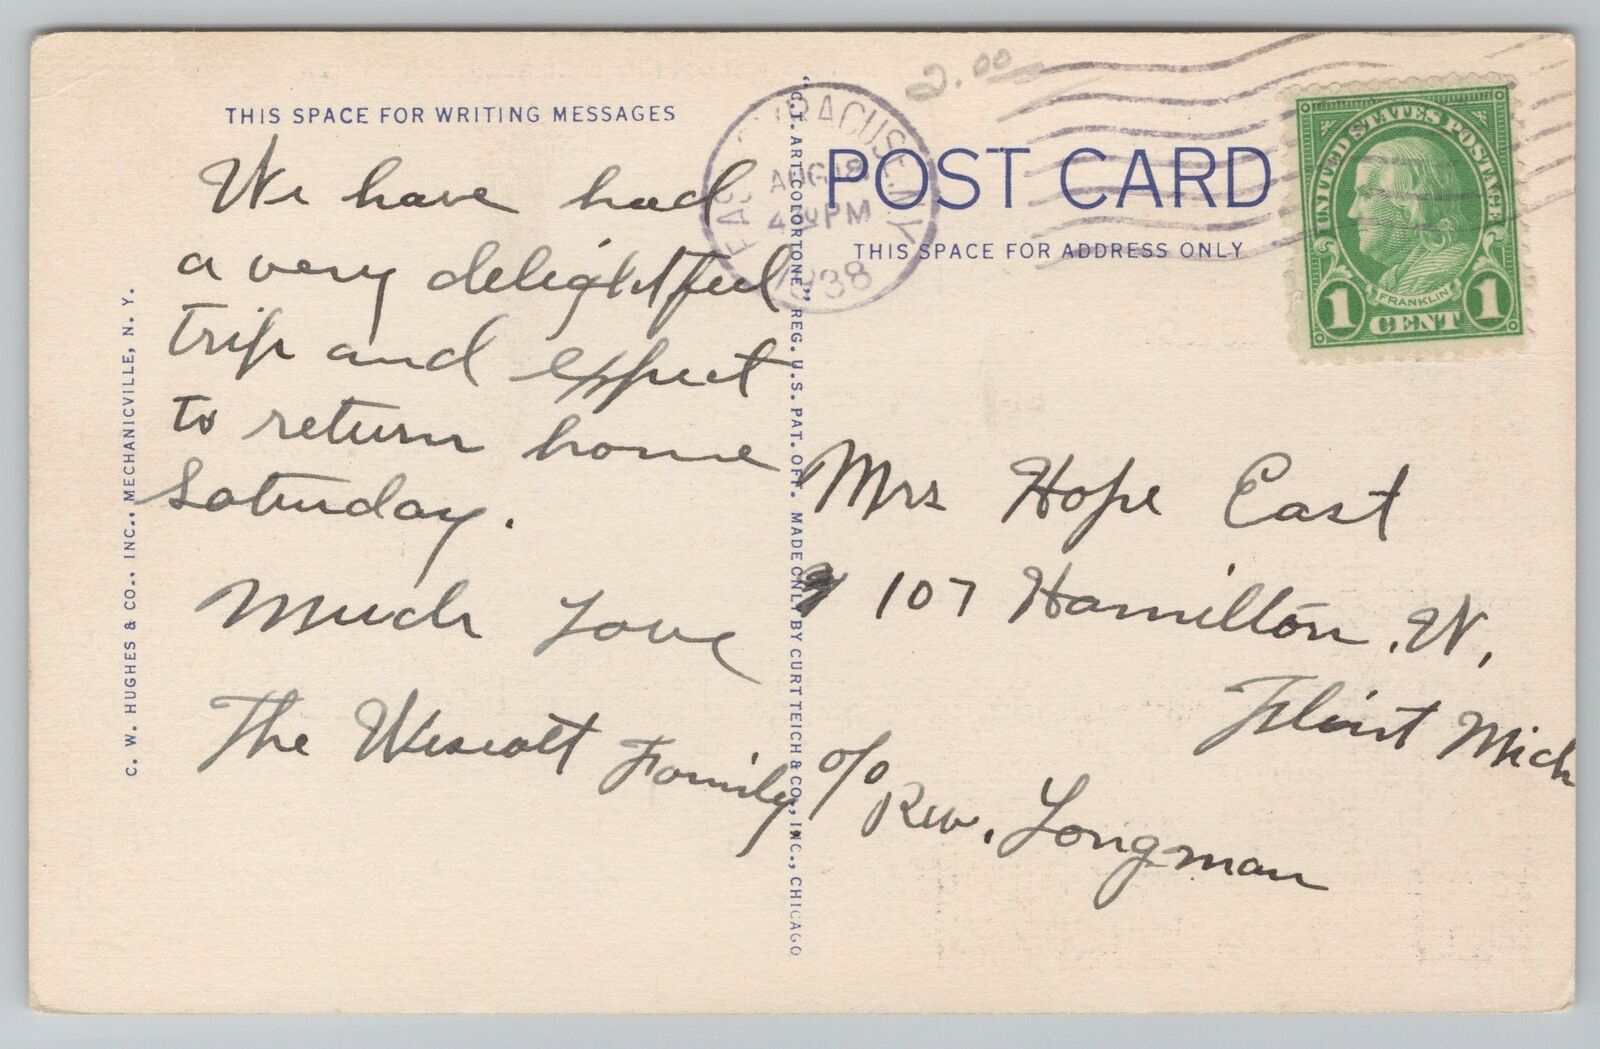 THIS SPACE FOR WRITING MESSAGES
We have had
a very delightful
trip and expect
to return home
Saturday.
Much Love
The Wescott Family
C. W. HUGHES & CO., INC., MECHANICVILLE, N. Y.
"C.T. ART-COLORTONE" REG. U.S. PAT. OFF. MADE ONLY BY CURT TEICH & CO., INC., CHICAGO
2.00
EAST SYRACUSE, N.Y.
AUG 18
4 PM
1938
POST CARD
THIS SPACE FOR ADDRESS ONLY
UNITED STATES POSTAGE
FRANKLIN
1 CENT 1
Mrs Hope East
107 Hamilton. W,
Flint Mich
c/o Rev. Longman